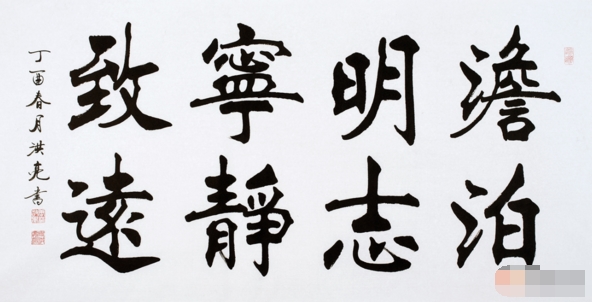 澹泊
明志
寧靜
致遠
丁酉春月洪亮書